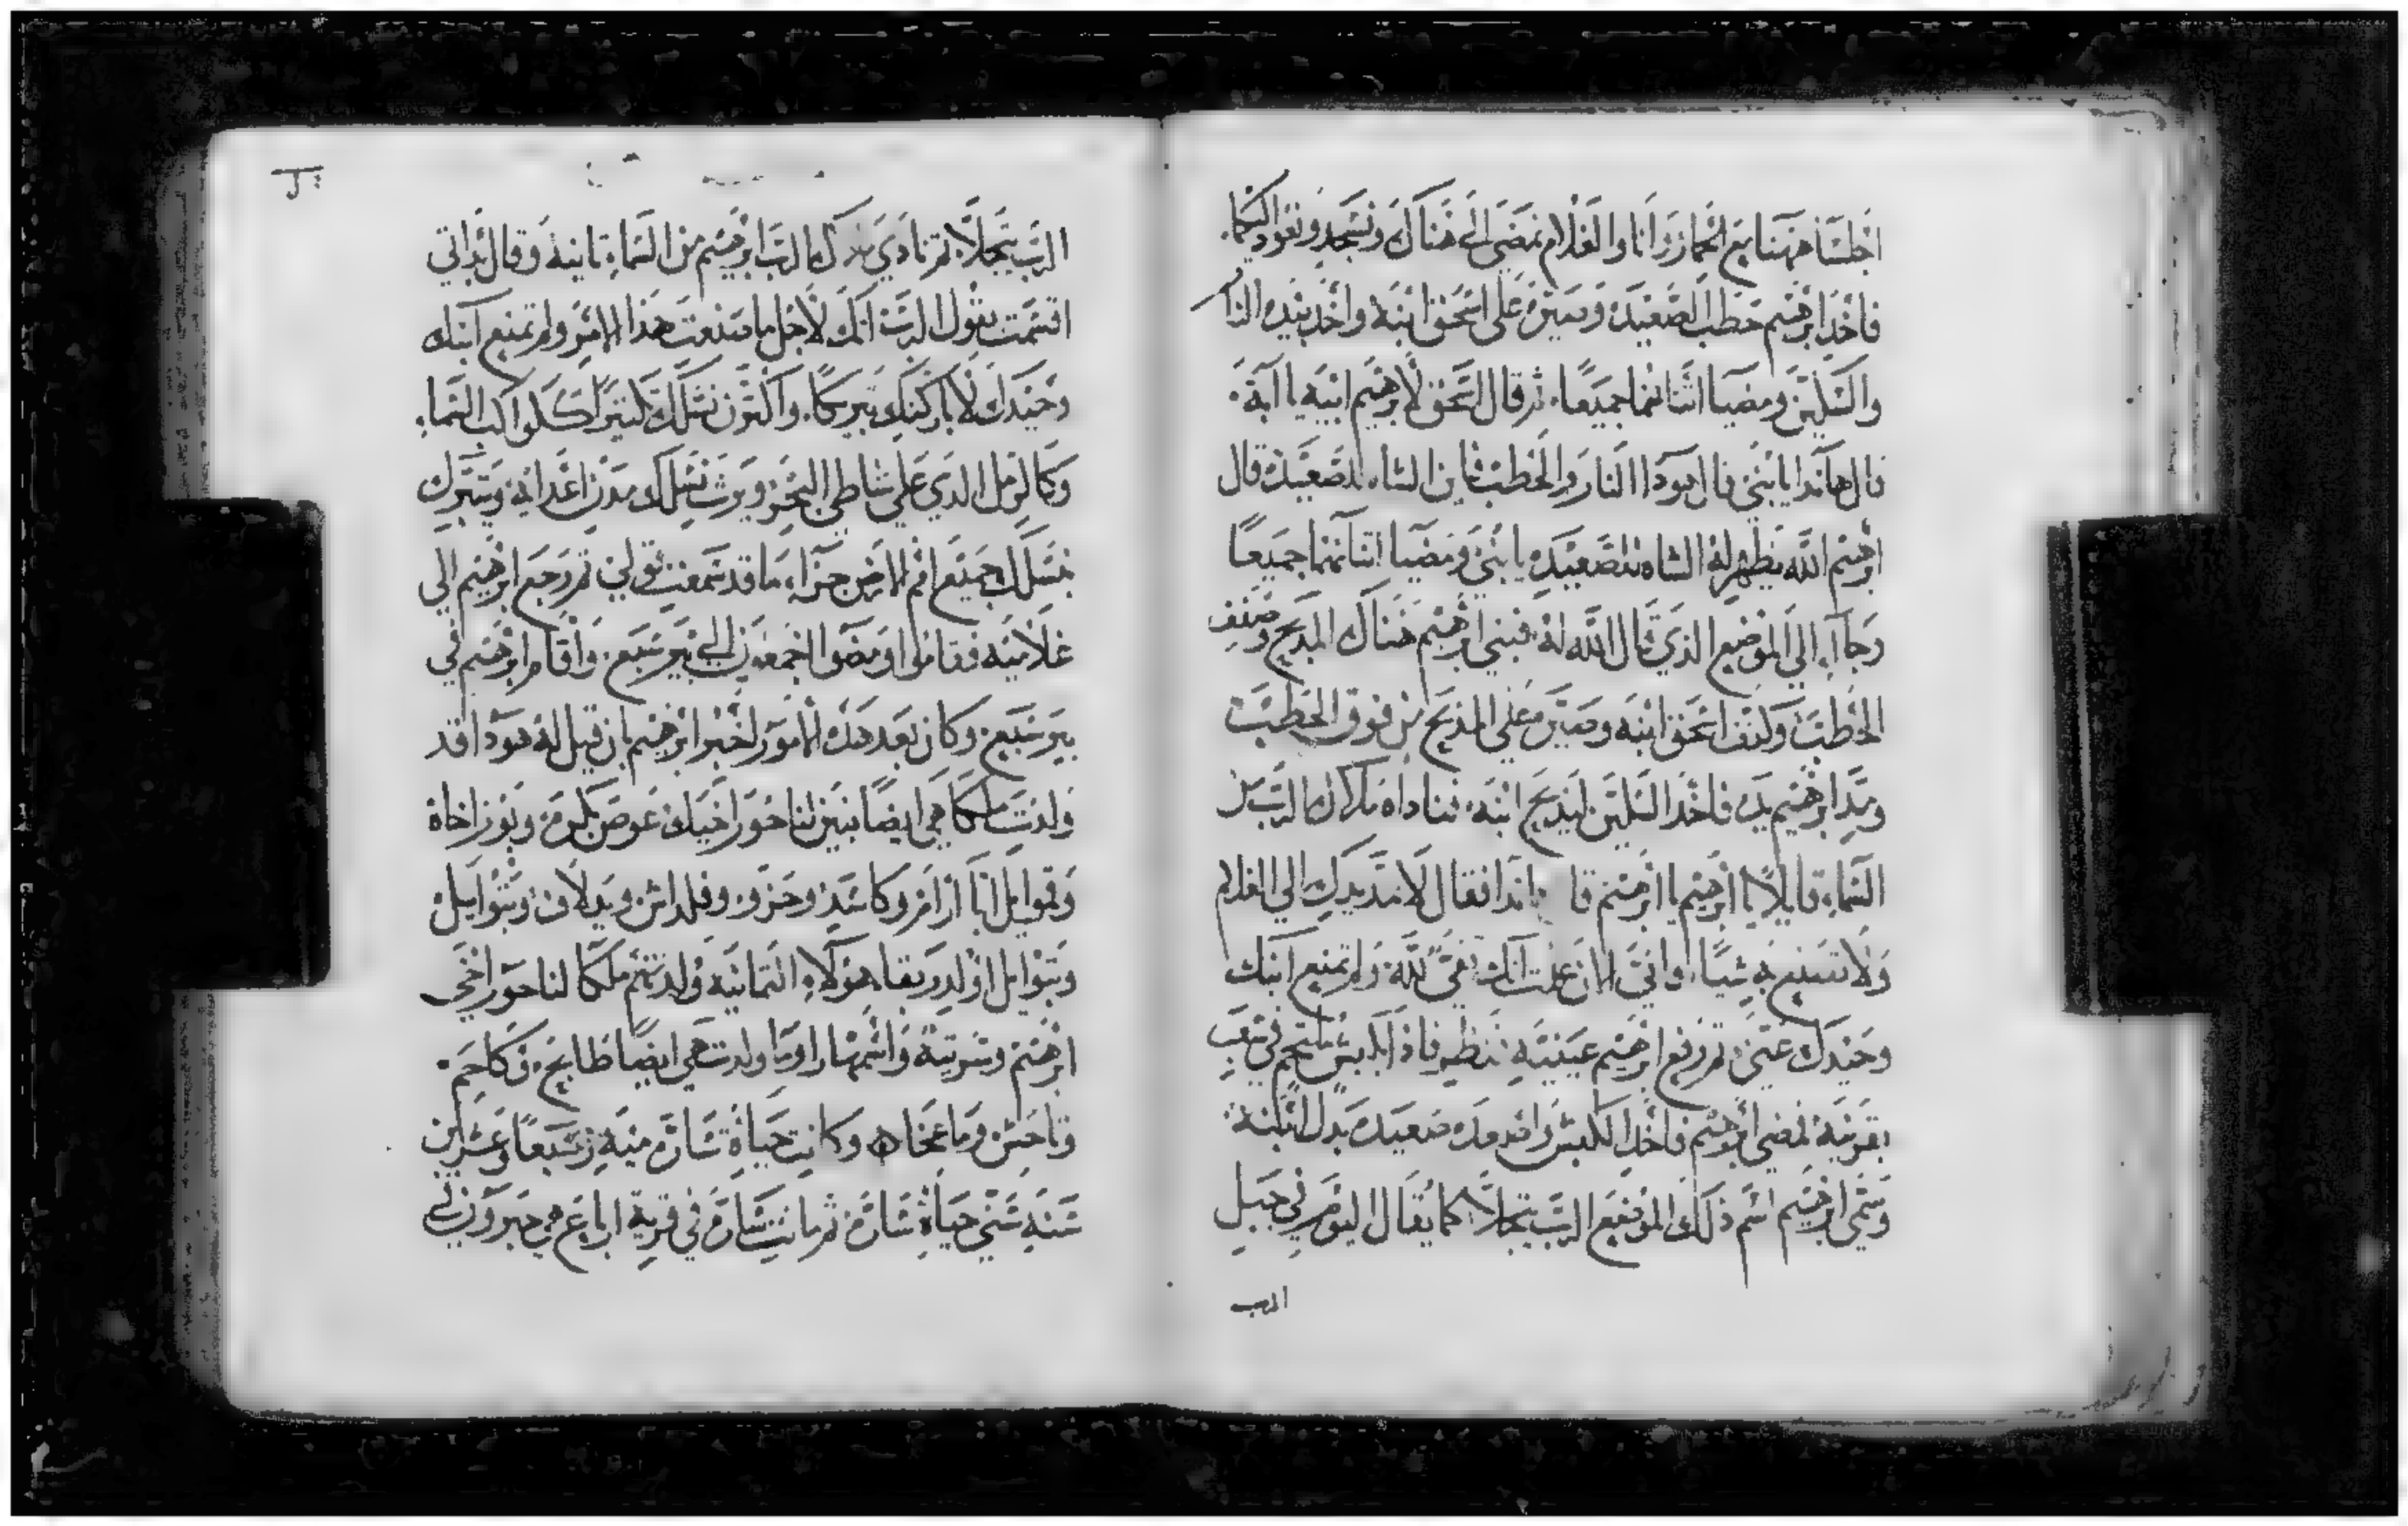 اجلسا ههنا مع الحمار وانا والغلام نمضي الي هناك ونسجد ونعود اليكما
فاخذ ابرهيم حطب الصعيدة وصيره علي اسحق ابنه واخذ بيده النار
والسكين ومضيا اثنانهما جميعا. ثم قال اسحق لابرهيم ابيه يا ابة.
قال هانذا يا بني قال هوذا النار والحطب فاين الشاه للصعيدة قال
ابرهيم الله يظهر له الشاه للصعيده يا بني ومضيا اثنانهما جميعا
وجاآ الي الموضع الذي قال الله له. فبني ابرهيم هناك المذبح وصفف
الحطب وكتف اسحق ابنه وصيره علي المذبح من فوق الحطب
ومد ابرهيم يده فاخذ السكين ليذبح ابنه. فناداه ملاك الرب من
السماء قايلا يا ابرهيم يا ابرهيم قا هانذا فقال لا تمد يدك الي الغلام
ولا تصنع به شيا. وانني الان علمت انك تتقي الله ولم تمنع ابنك
وحيدك عني. ثم رفع ابرهيم عينيه فنظر فاذا كبش ملتحم في شعب
بقرنيه فمضي ابرهيم فاخذ الكبش واصعده صعيده بدل ابنه
وسمي ابرهيم اسم ذلك الموضع الرب يتجلا كما يقال اليوم في جبل
الرب
الرب يتجلا. ثم نادي ملاك الرب ابرهيم من السماء تانيه وقال بذاتي
اقسمت يقول الرب انك لاجل ما صنعت هذا الامر ولم تمنع ابنك
وحيدك لاباركنك تبريكا. واكثرن نسلك كثيرا ككواكب السماء.
وكالرمل الذي علي شاطي البحر ويرث نسلك مدن اعدائه ويتبرك
بنسلك جميع امم الارض جزاء ما قد سمعت قولي. ثم رجع ابرهيم الي
غلاميه فقاموا ومضوا اجمعون الي بير سبع. واقام ابرهيم في
بير سبع. وكان بعد هذه الامور اخبر ابرهيم بان قيل له هوذا قد
ولدت ملكا هي ايضا بنين لناحور اخيك عوص بكره وبوز اخاه
وقموايل ابا ارام. وكاسد وحزو. وفلداش ويدلاف. وبتوايل
وبتوايل اولد ربقا هولاء الثمانيه ولدتهم ملكا لناحور اخي
ابرهيم وسريته واسمها راوما ولدت هي ايضا طابح. وكاحم.
وتاحش وماعخاه وكانت حياة ساره ميه وسبعا وعشرين
سنه سني حياة ساره ثم ماتت ساره في قرية اباع هي حبرون في